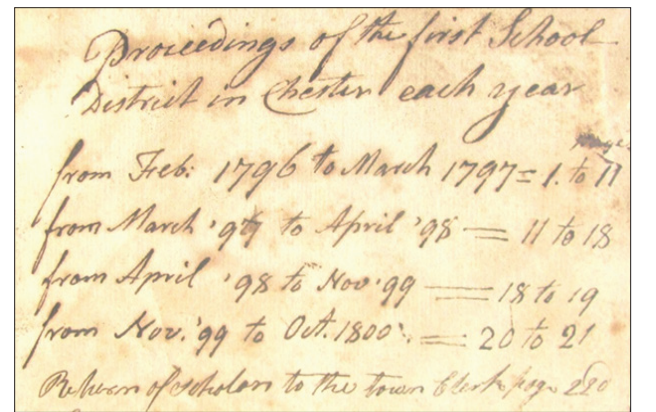 Proceedings of the first School
District in Chester each year
pages
from Feb: 1796 to March 1797 = 1. to 11
from March '97 to April '98 = 11 to 18
from April '98 to Nov '99 = 18 to 19
from Nov. '99 to Oct. 1800 = 20 to 21
Return of scholars to the town Clerk page 220